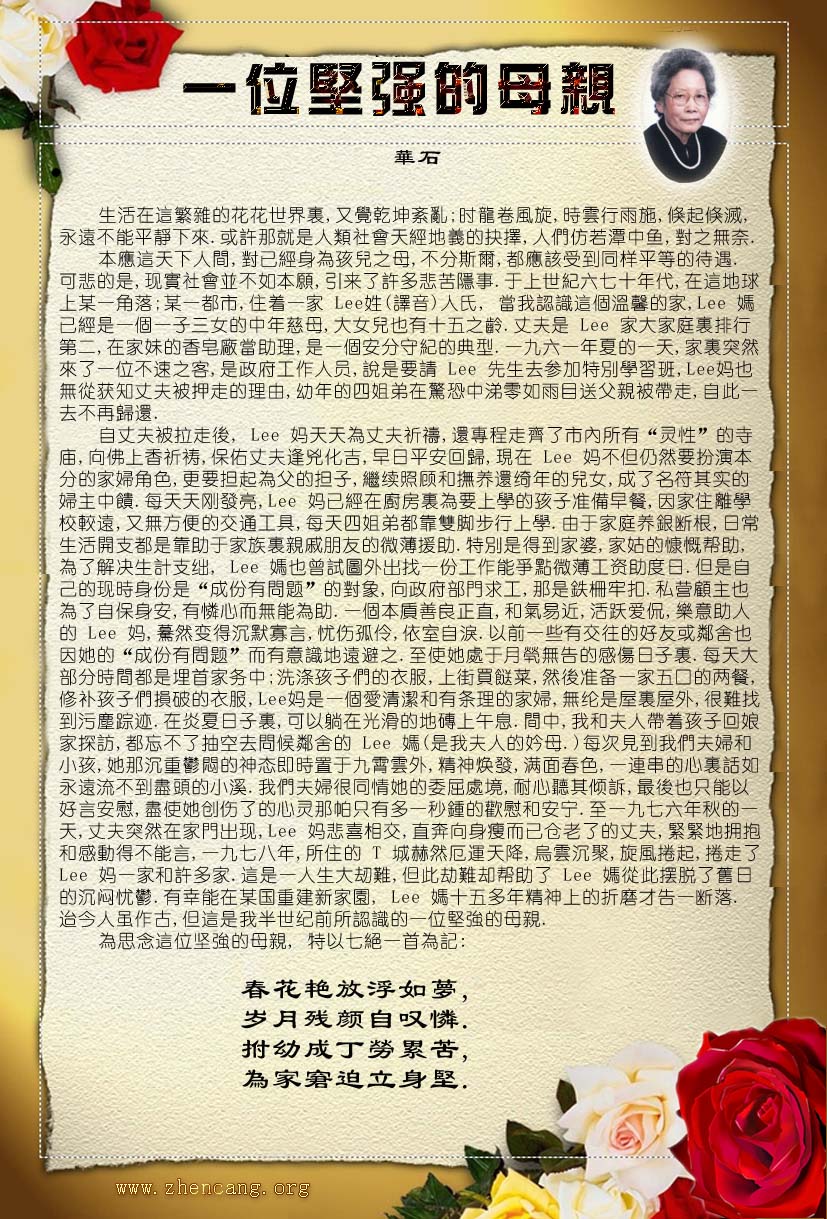 一位堅强的母親
華石
生活在這繁雜的花花世界裏,又覺乾坤紊亂;时龍卷風旋,時雲行雨施,倏起倏滅,
永遠不能平靜下來.或許那就是人類社會天經地義的抉擇,人們仿若潭中鱼,對之無奈.
本應這天下人間,對已經身為孩兒之母,不分斯爾,都應該受到同样平等的待遇.
可悲的是,现實社會並不如本願,引来了許多悲苦隱事.于上世紀六七十年代,在這地球
上某一角落;某一都市,住着一家 Lee姓(譯音)人氏, 當我認識這個溫馨的家,Lee 媽
已經是一個一子三女的中年慈母,大女兒也有十五之齡.丈夫是 Lee 家大家庭裏排行
第二,在家妹的香皂廠當助理,是一個安分守紀的典型.一九六一年夏的一天,家裏突然
來了一位不速之客,是政府工作人员,說是要請 Lee 先生去参加特别學習班,Lee妈也
無從获知丈夫被押走的理由,幼年的四姐弟在驚恐中涕零如雨目送父親被帶走,自此一
去不再歸還.
自丈夫被拉走後, Lee 妈天天為丈夫祈禱,還專程走齊了市內所有“灵性”的寺
庙,向佛上香祈祷,保佑丈夫逢兇化吉,早日平安回歸,現在 Lee 妈不但仍然要扮演本
分的家婦角色,更要担起為父的担子,繼续照顾和撫养還绮年的兒女,成了名符其实的
婦主中饋.每天天刚發亮,Lee 妈已經在廚房裏為要上學的孩子准備早餐,因家住離學
校較遠,又無方便的交通工具,每天四姐弟都靠雙脚步行上學.由于家庭养銀断根,日常
生活開支都是靠助于家族裏親戚朋友的微薄援助.特别是得到家婆,家姑的慷慨帮助,
為了解决生計支绌, Lee 媽也曾試圖外出找一份工作能爭點微薄工资助度日.但是自
己的现时身份是“成份有問題”的對象,向政府部門求工,那是鉄栅牢扣.私营顧主也
為了自保身安,有憐心而無能為助.一個本質善良正直,和氣易近,活跃爱侃,樂意助人
的 Lee 妈,驀然变得沉默寡言,忧伤孤伶,依室自淚.以前一些有交往的好友或鄰舍也
因她的“成份有問題”而有意識地遠避之.至使她處于月煢無告的感傷日子裏.每天大
部分時間都是埋首家务中;洗涤孩子們的衣服,上街買餸菜,然後准备一家五口的两餐,
修补孩子們損破的衣服,Lee妈是一個愛清潔和有条理的家婦,無纶是屋裏屋外,很難找
到污塵踪迹.在炎夏日子裏,可以躺在光滑的地磚上午息.間中,我和夫人帶着孩子回娘
家探訪,都忘不了抽空去問候鄰舍的 Lee 媽(是我夫人的妗母.)每次見到我們夫婦和
小孩,她那沉重鬱悶的神态即時置于九霄雲外,精神煥發,满面春色,一連串的心裏話如
永遠流不到盡頭的小溪.我們夫婦很同情她的委屈處境,耐心聽其倾訴,最後也只能以
好言安慰,盡使她创伤了的心灵那帕只有多一秒鍾的歡慰和安宁.至一九七六年秋的一
天,丈夫突然在家門出现,Lee 妈悲喜相交,直奔向身瘦而已仓老了的丈夫,緊緊地拥抱
和感動得不能言,一九七八年,所住的 T 城赫然厄運天降,烏雲沉聚,旋風捲起,捲走了
Lee 妈一家和許多家.這是一人生大劫難,但此劫難却帮助了 Lee 媽從此摆脱了舊日
的沉闷忧鬱.有幸能在某国重建新家園, Lee 媽十五多年精神上的折磨才告一断落.
迨今人虽作古,但這是我半世纪前所認識的一位堅強的母親.
為思念這位坚強的母親, 特以七絕一首為記:
春花艳放浮如夢,
岁月残颜自叹憐.
拊幼成丁勞累苦,
為家窘迫立身堅.
www.zhencang.org